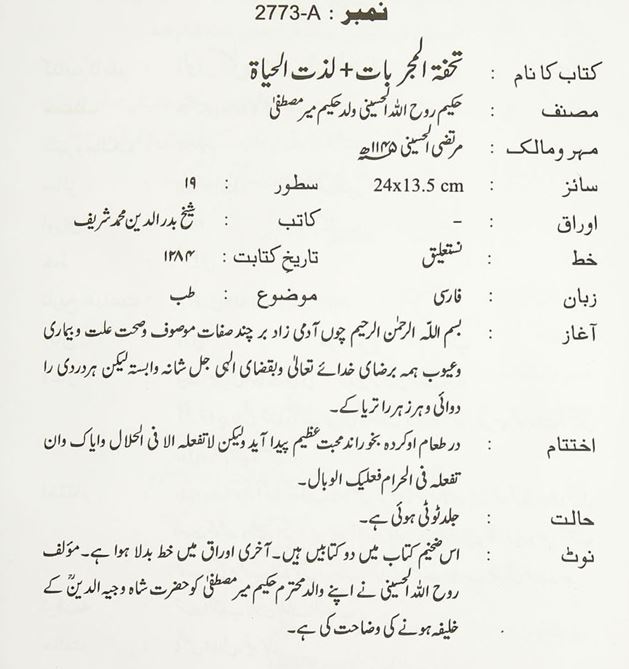 نمبر : 2773-A
کتاب کا نام : تحفۃ المجربات + لذت الحیاۃ
مصنف : حکیم روح اللہ الحسینی ولد حکیم میر مصطفیٰ
مہر و مالک : مرتضی الحسینی ۱۱۴۵ھ
سائز : 24x13.5 cm سطور : ۱۹
اوراق : – کاتب : شیخ بدر الدین محمد شریف
خط : نستعلیق تاریخِ کتابت : ۱۲۸۴
زبان : فارسی موضوع : طب
آغاز : بسم اللہ الرحمٰن الرحیم چوں آدمی زاد بر چند صفات موصوف وصحت علت و بیماری
وعیوب ہمہ برضای خدائے تعالیٰ وبقضای الہی جل شانہ وابستہ لیکن ہر دردی را
دوائی و ہر زہر را تریاکے۔
اختتام : در طعام او کردہ بخوراند محبت عظیم پیدا آید ولیکن لا تفعلہ الا فی الحلال وایاک وان
تفعلہ فی الحرام فعلیک الوبال۔
حالت : جلد ٹوٹی ہوئی ہے۔
نوٹ : اس ضخیم کتاب میں دو کتابیں ہیں۔ آخری اوراق میں خط بدلا ہوا ہے۔ مؤلف
روح اللہ الحسینی نے اپنے والد محترم حکیم میر مصطفیٰ کو حضرت شاہ وجیہ الدینؒ کے
خلیفہ ہونے کی وضاحت کی ہے۔